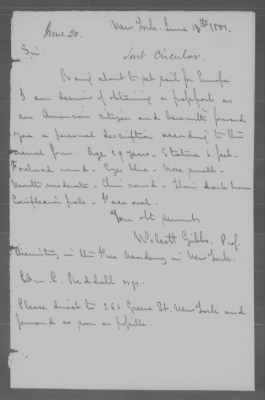 June 20.
New York. June 18th 1851.
Sir
Being about to set sail for Europe
I am desirous of obtaining a passport as
an American citizen and herewith forward
you a personal description according to the
usual form. Age 29 years - Stature 6 feet -
Forehead round - Eyes blue - Nose small -
Mouth moderate - Chin round - Hair dark brown
Complexion pale - Face oval.
Your obt servant
Wolcott Gibbs, Prof.
Chemistry in the Free Academy in New York.
C. Reddall
Please direct to 261 Greene St. New York and
forward as soon as possible.